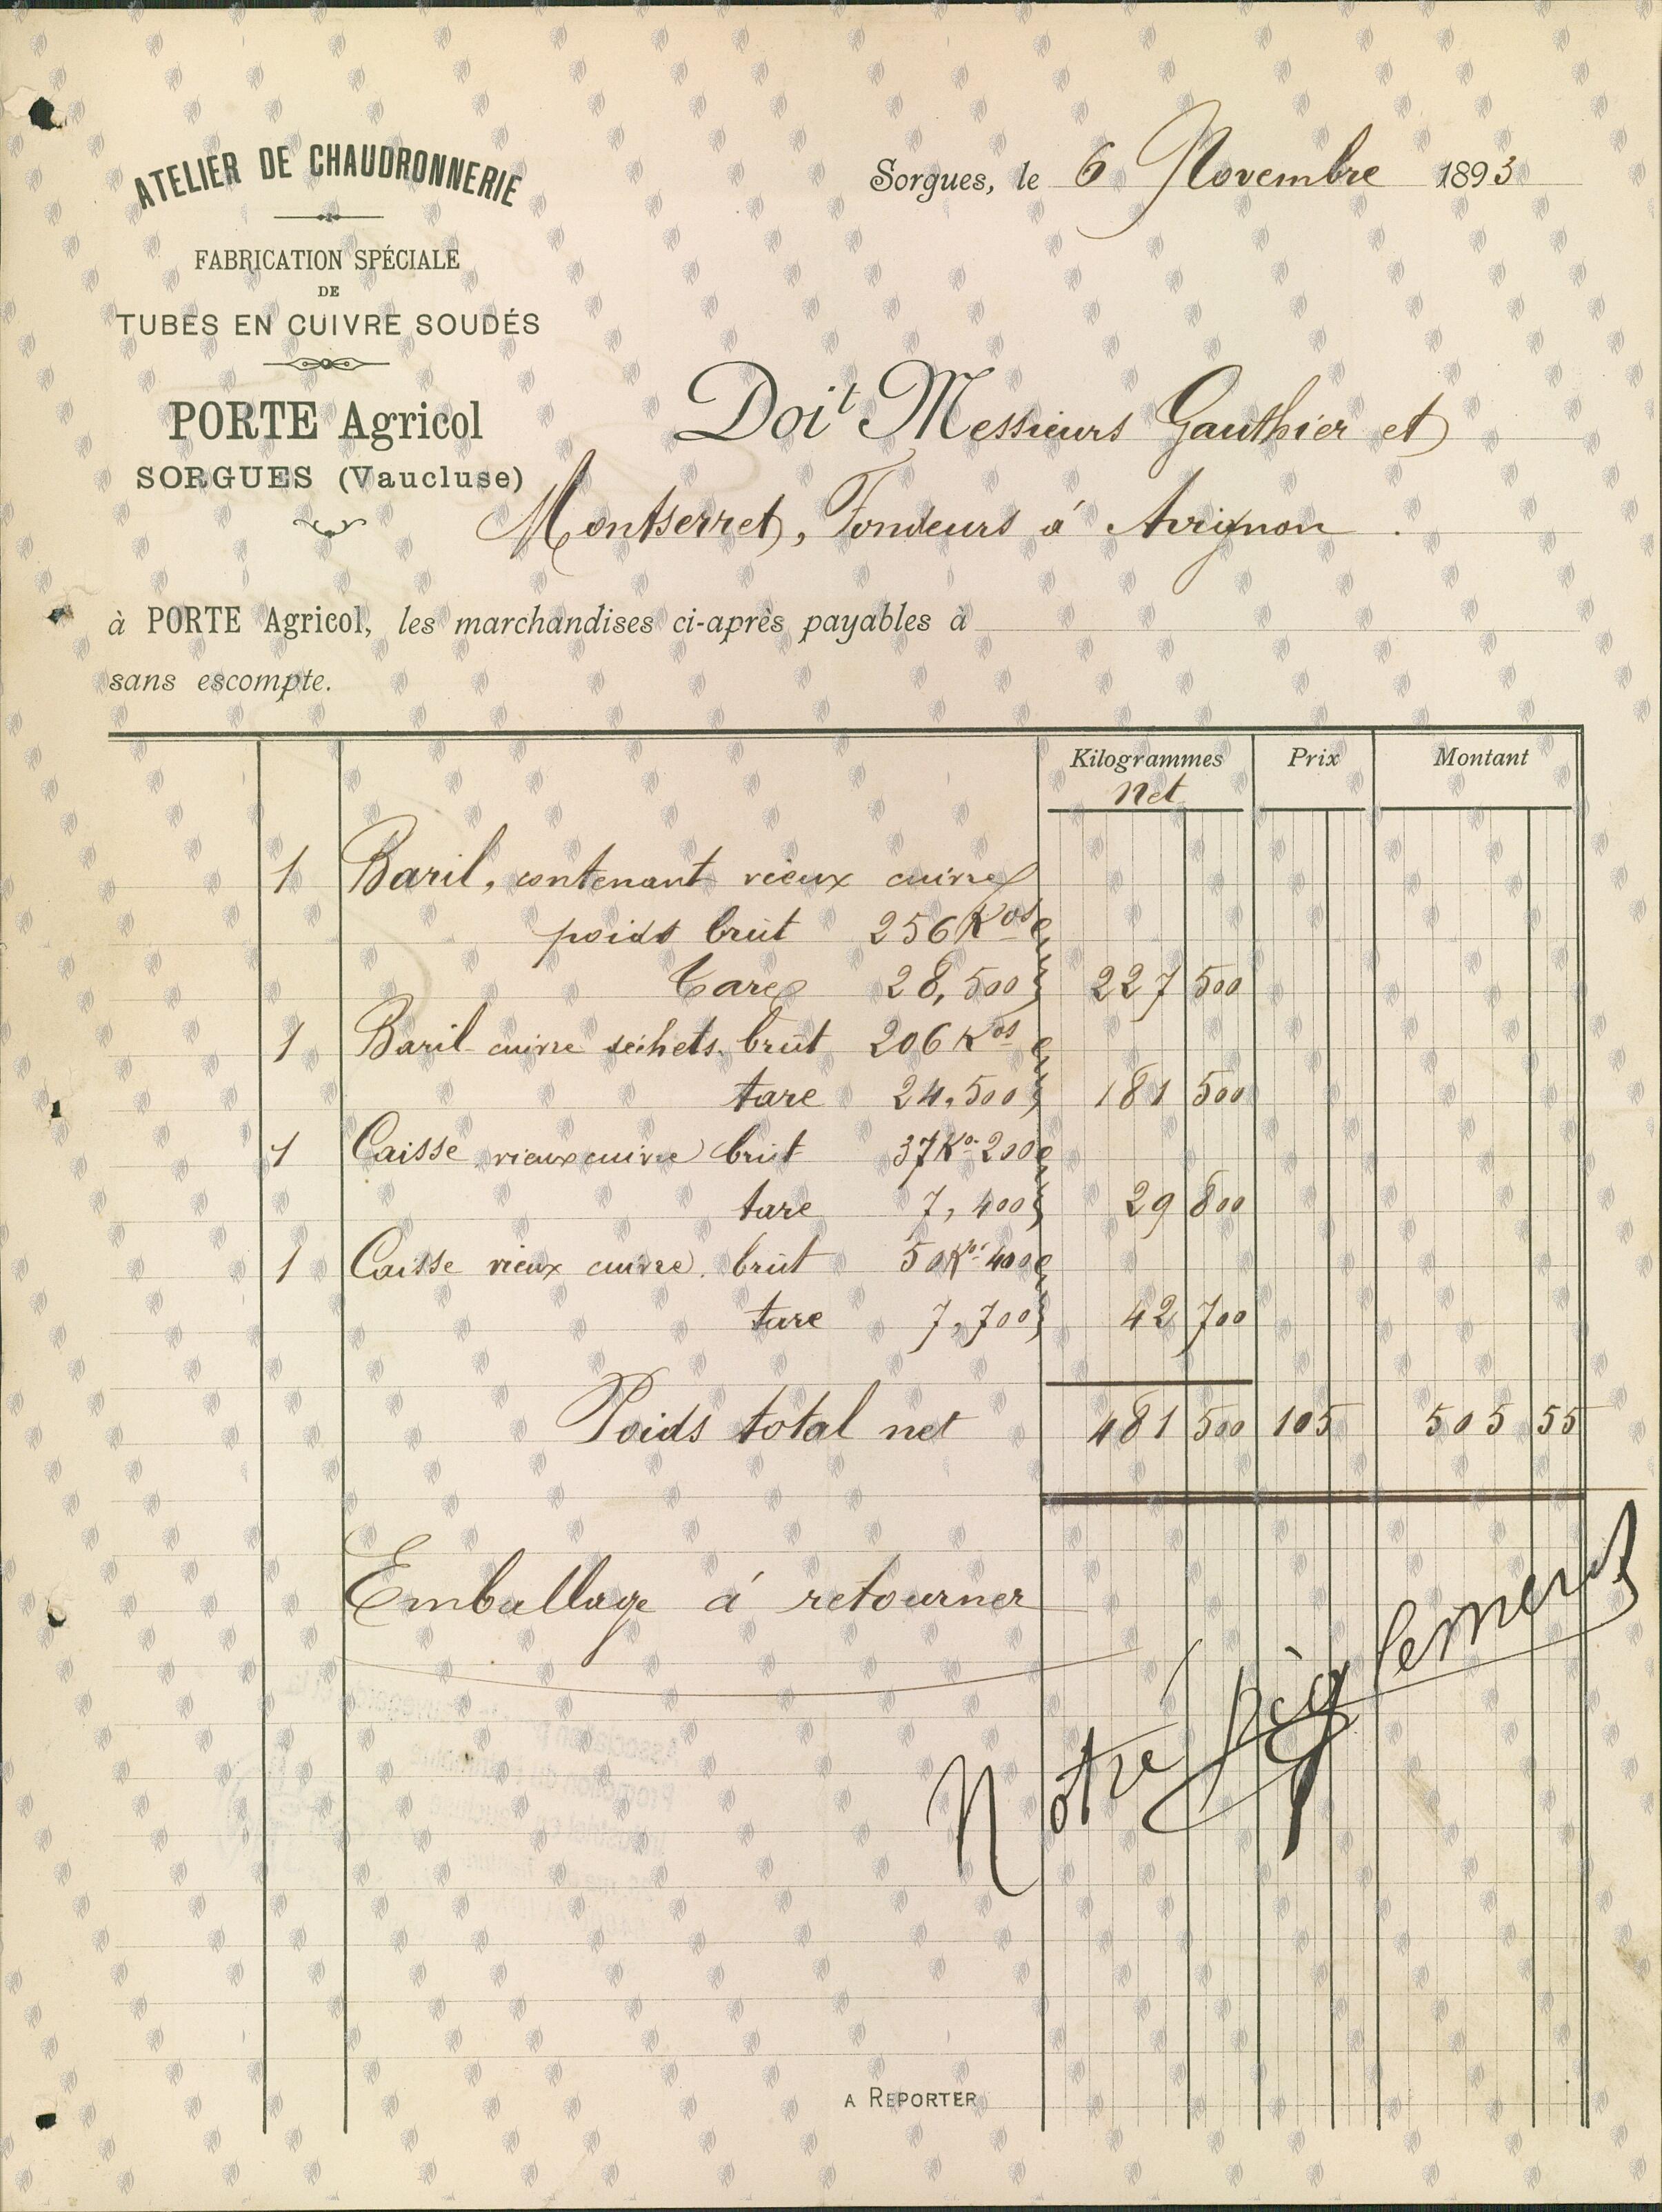 ATELIER DE CHAUDRONNERIE
FABRICATION SPÉCIALE
DE
TUBES EN CUIVRE SOUDÉS
PORTE Agricol
SORGUES (Vaucluse)
Sorgues, le 6 Novembre 1893
Doit Messieurs Gauthier et
Montserret, Fondeurs á Avignon.
à PORTE Agricol, les marchandises ci-après payables à
sans escompte.
Kilogrammes Prix Montant
Net
1 Baril, contenant vieux cuivre
poids brût 256 Kos
Tare 28,500 227 500
1 Baril cuivre séchets brût 206 Kos
tare 24,500 181 500
1 Caisse vieux cuivre brût 37 Ko 200
tare 7,400 29 800
1 Caisse vieux cuivre brût 50 Kos 400
tare 7,700 42 700
Poids total net 481 500 105 505 55
Emballage á retourner
Notre Règlement
A REPORTER